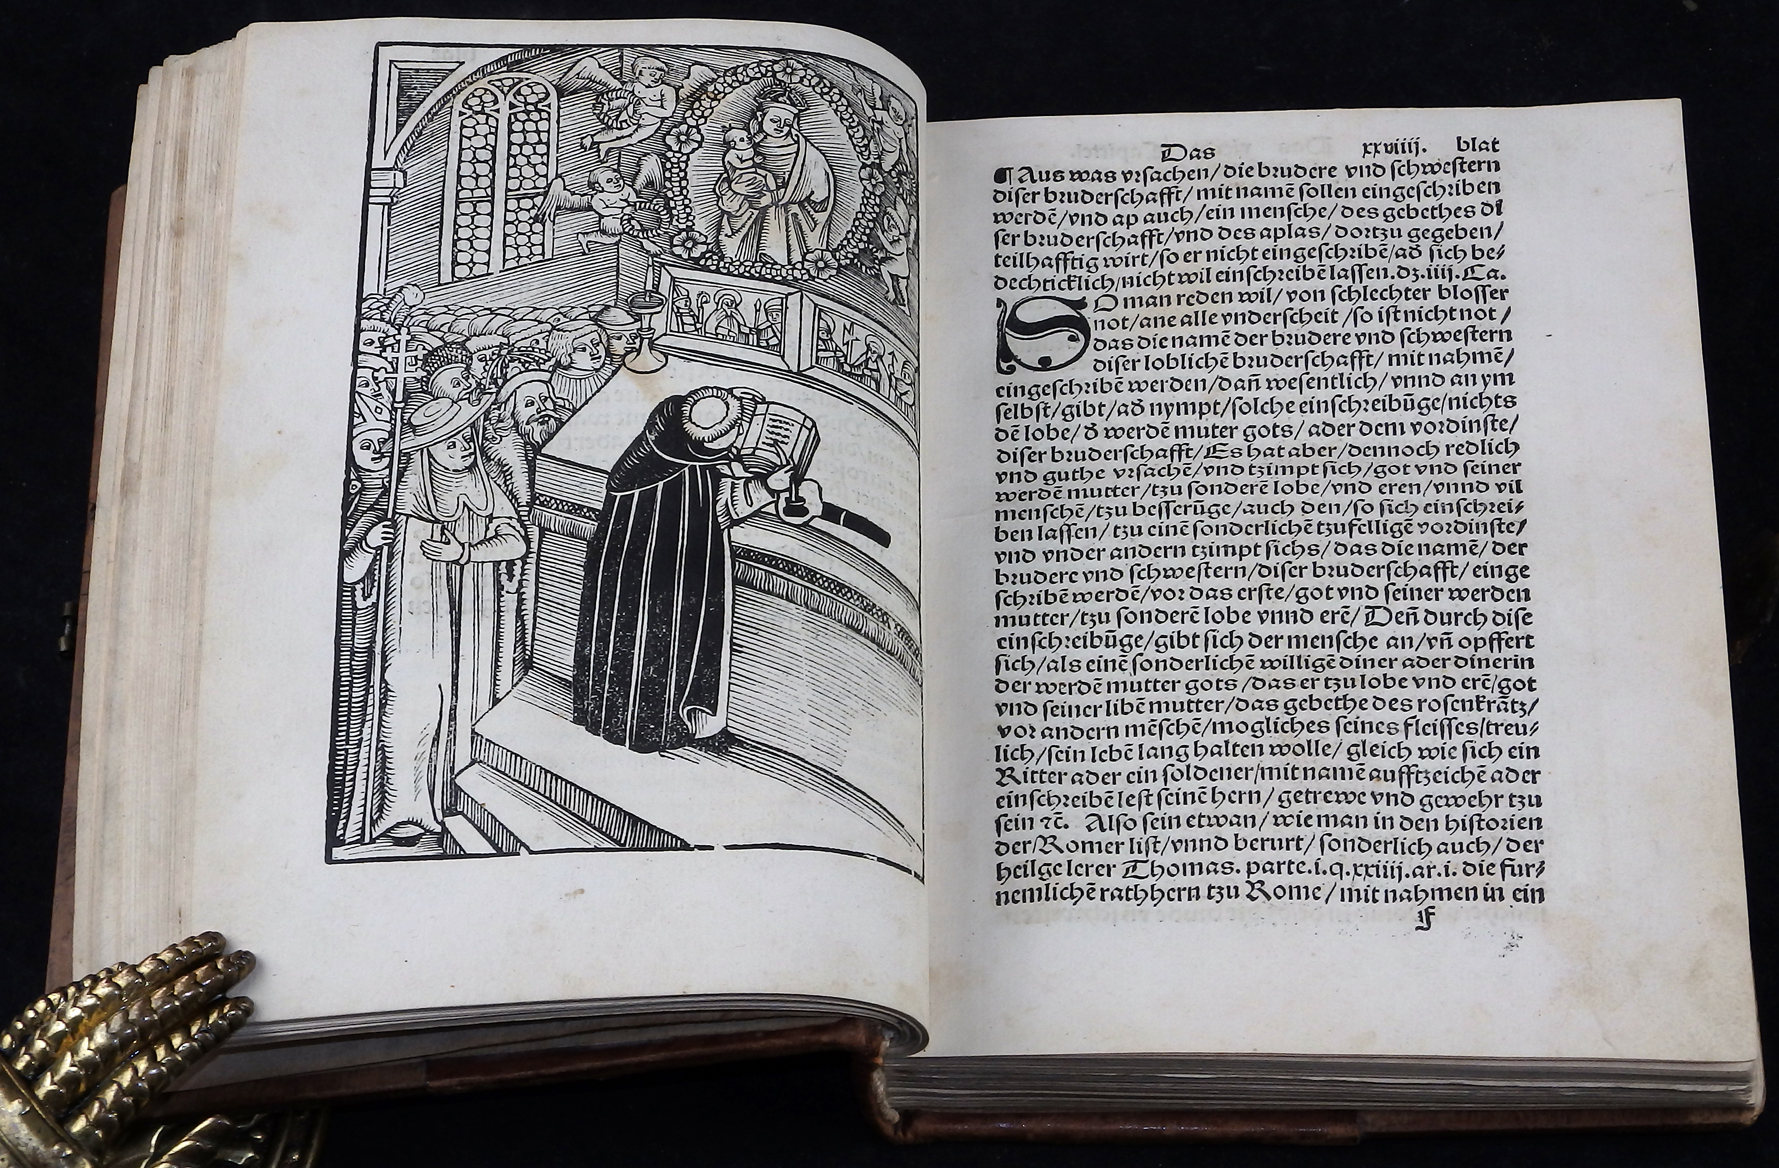 Das xxviiij. blat
¶ Aus was vrsachen/die brudere vnd schwestern
diser bruderschafft/mit namē sollen eingeschriben
werdē/vnd ap auch/ein mensche/des gebethes di
ser bruderschafft/vnd des aplas/dortzu gegeben/
teilhafftig wirt/so er nicht eingeschribē/ađ sich be⸗
dechticklich/nicht wil einschreibē lassen.dz.iiij.Ca.
SO man reden wil/von schlechter blosser
not/ane alle vnderscheit/so ist nicht not/
das die namē der brudere vnd schwestern
diser loblichē bruderschafft/mit nahmē/
eingeschribē werden/dañ wesentlich/vnnd an ym
selbst/gibt/ađ nympt/solche einschreibūge/nichts
dē lobe/đ werdē muter gots/ader dem vordinste/
diser bruderschafft/Es hat aber/dennoch redlich
vnd guthe vrsachē/vnd tzimpt sich/got vnd seiner
werdē mutter/tzu sonderē lobe/vnd eren/vnnd vil
menschē/tzu besserūge/auch den/so sich einschrei⸗
ben lassen/tzu einē sonderlichē tzufelligē vordinste/
vnd vnder andern tzimpt sichs/das die namē/der
brudere vnd schwestern/diser bruderschafft/einge
schribē werdē/vor das erste/got vnd seiner werden
mutter/tzu sonderē lobe vnnd erē/Deñ durch dise
einschreibūge/gibt sich der mensche an/vñ opffert
sich/als einē sonderlichē willigē diner ader dinerin
der werdē mutter gots/das er tzu lobe vnd erē/got
vnd seiner libē mutter/das gebethe des rosenkrātz/
vor andern mēschē/mogliches seines fleisses/treu⸗
lich/sein lebē lang halten wolle/gleich wie sich ein
Ritter ader ein soldener/mit namē aufftzeichē ader
einschreibē lest seinē hern/getrewe vnd gewehr tzu
sein ⁊c̄. Also sein etwan/wie man in den historien
der/Romer list/vnnd berurt/sonderlich auch/der
heilge lerer Thomas. parte.i.q.xxiiij.ar.i. die fur⸗
nemlichē rathhern tzu Rome/mit nahmen in ein
F